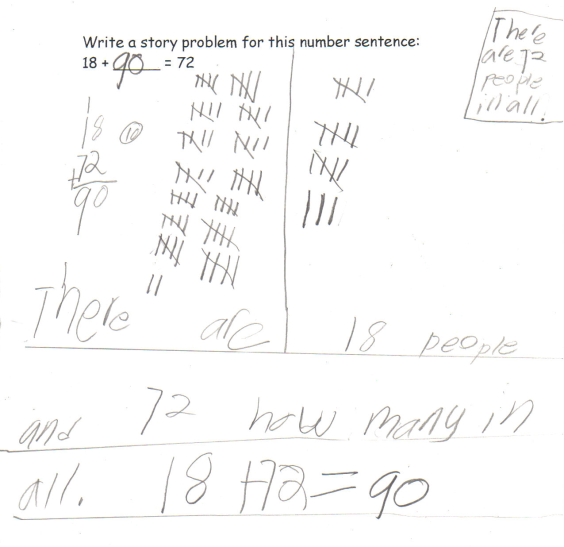 Write a story problem for this number sentence:
18 + 90 = 72
There
are 72
people
in all.
1
18
+72
90
10
There are 18 people
and 72 how many in
all. 18+72=90